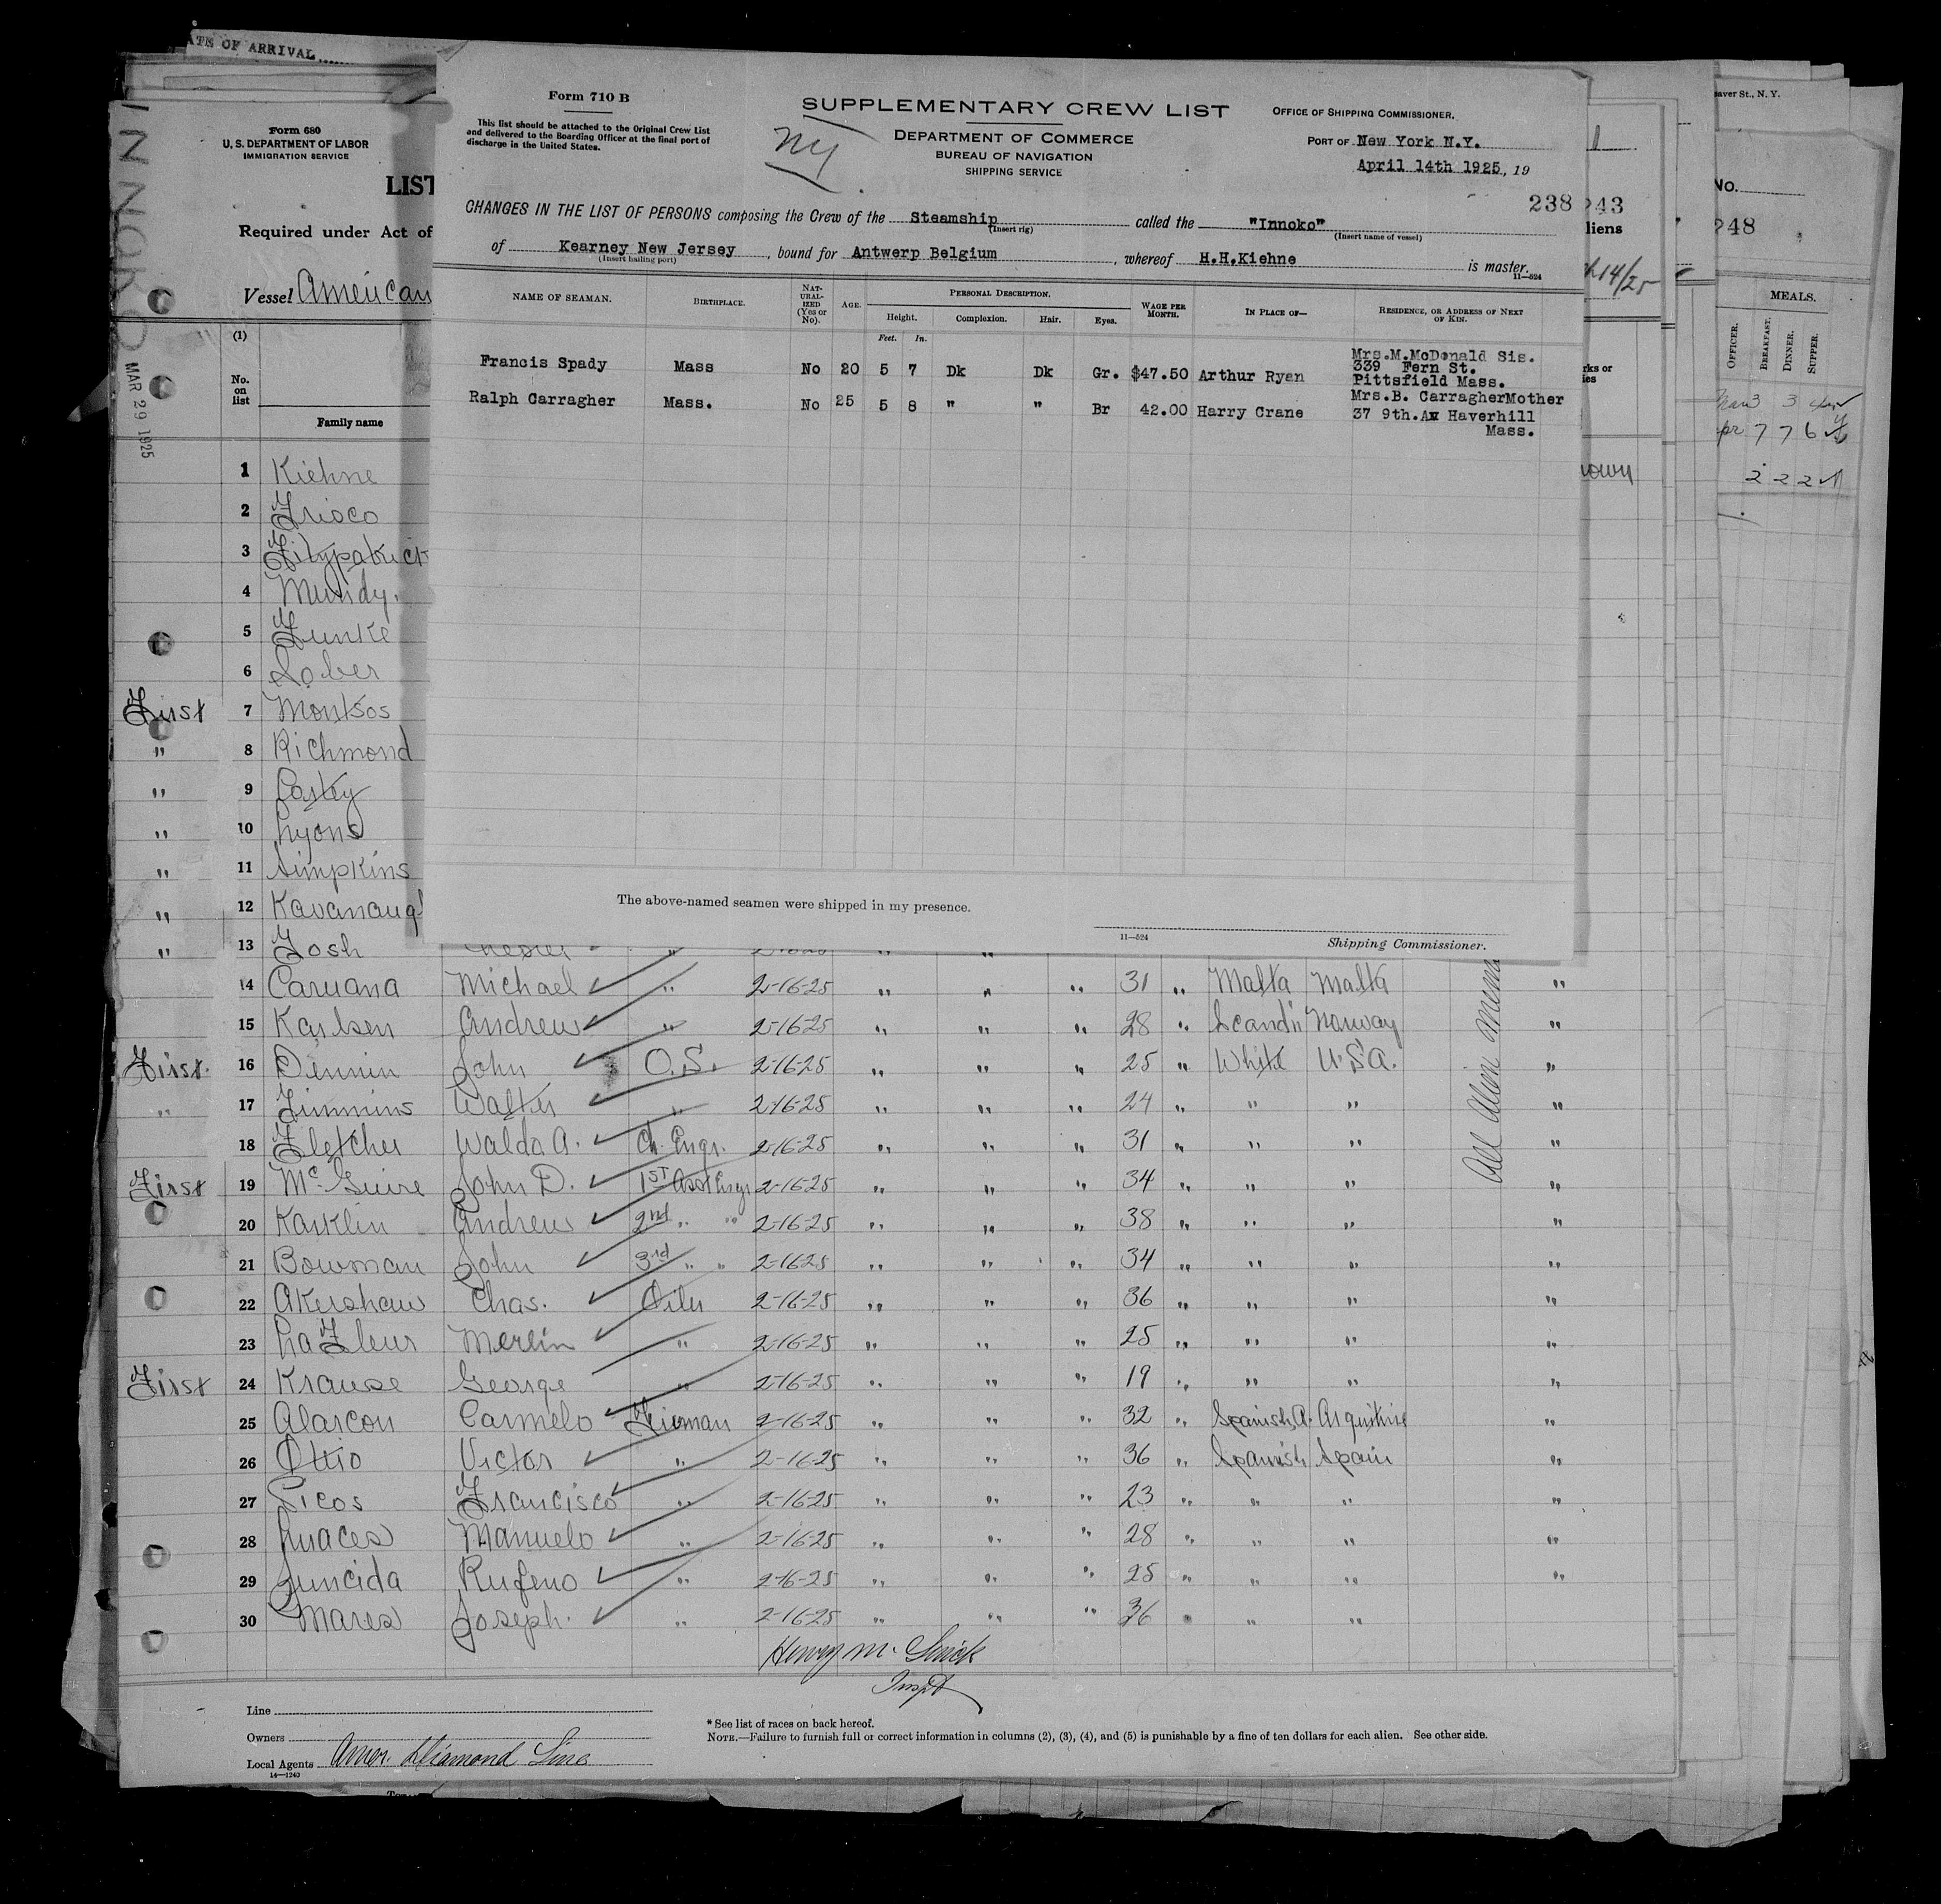 ATE OF ARRIVAL
INNOKO
MAR 29 1925
Form 680
U. S. DEPARTMENT OF LABOR
IMMIGRATION SERVICE
LIST
Required under Act of
Vessel American
(1)
No. on list
Family name
Form 710 B
This list should be attached to the Original Crew List
and delivered to the Boarding Officer at the final port of
discharge in the United States.
NY
SUPPLEMENTARY CREW LIST
DEPARTMENT OF COMMERCE
BUREAU OF NAVIGATION
SHIPPING SERVICE
OFFICE OF SHIPPING COMMISSIONER.
PORT OF New York N.Y.
April 14th 1925, 19
238
CHANGES IN THE LIST OF PERSONS composing the Crew of the Steamship called the "Innoko"
(Insert rig) (Insert name of vessel)
of Kearney New Jersey, bound for Antwerp Belgium, whereof H.H.Kiehne is master.
(Insert hailing port)
11—524
NAME OF SEAMAN. BIRTHPLACE. NATURALIZED (Yes or No). AGE. PERSONAL DESCRIPTION. WAGE PER MONTH. IN PLACE OF— RESIDENCE, OR ADDRESS OF NEXT OF KIN.
Height. Complexion. Hair. Eyes.
Feet. In.
Francis Spady Mass No 20 5 7 Dk Dk Gr. $47.50 Arthur Ryan Mrs.M.McDonald Sis.
339 Fern St.
Pittsfield Mass.
Ralph Carragher Mass. No 25 5 8 " " Br 42.00 Harry Crane Mrs.B. CarragherMother
37 9th.Av Haverhill
Mass.
The above-named seamen were shipped in my presence.
11—524
Shipping Commissioner.
243
liens
14/25
rks or
ies
nown
aver St., N. Y.
No.
248
MEALS.
OFFICER. BREAKFAST. DINNER. SUPPER.
3 3
7 7 6
2 2 2
1 Kiehne
2 Frisco
3 Fitzpatrick
4 Mundy.
5 Funke
6 Sober
First 7 Montsos
" 8 Richmond
" 9 Caskey
" 10 Lyons
" 11 Simpkins
" 12 Kavanaugh
" 13 Fosh Chester
14 Caruana Michael " 2-16-25 " " " 31 " Malta Malta "
15 Karlsen Andrew " 2-16-25 " " " 28 " Scandi Norway "
First 16 Dennin John O.S. 2-16-25 " " " 25 " White U.S.A. "
" 17 Timmins Walter " 2-16-25 " " " 24 " " " "
18 Fletcher Waldo A. Ch. Engr. 2-16-25 " " " 31 " " " "
First 19 McGuire John D. 1ST Asst Engr 2-16-25 " " " 34 " " " "
20 Karklin Andrew 2nd " " 2-16-25 " " " 38 " " " "
21 Bowman John 3rd " " 2-16-25 " " " 34 " " " "
22 Akershaw Chas. Oiler 2-16-25 " " " 36 " " " "
23 LaFleur Merlin " 2-16-25 " " " 25 " " " "
First 24 Krause George " 2-16-25 " " " 19 " " " "
25 Alarcon Carmelo Fireman 2-16-25 " " " 32 " Spanish A. "
26 Ottio Victor " 2-16-25 " " " 36 " Spanish Spain "
27 Picos Francisco " 2-16-25 " " " 23 " " " "
28 Luaces Manuelo " 2-16-25 " " " 28 " " " "
29 Juncida Rufeno " 2-16-25 " " " 25 " " " "
30 Mares Joseph. " 2-16-25 " " " 36 " " "
All Alien
Inspt
Line
Owners
Local Agents Amer. Diamond Line
14—1240
* See list of races on back hereof.
NOTE.—Failure to furnish full or correct information in columns (2), (3), (4), and (5) is punishable by a fine of ten dollars for each alien. See other side.